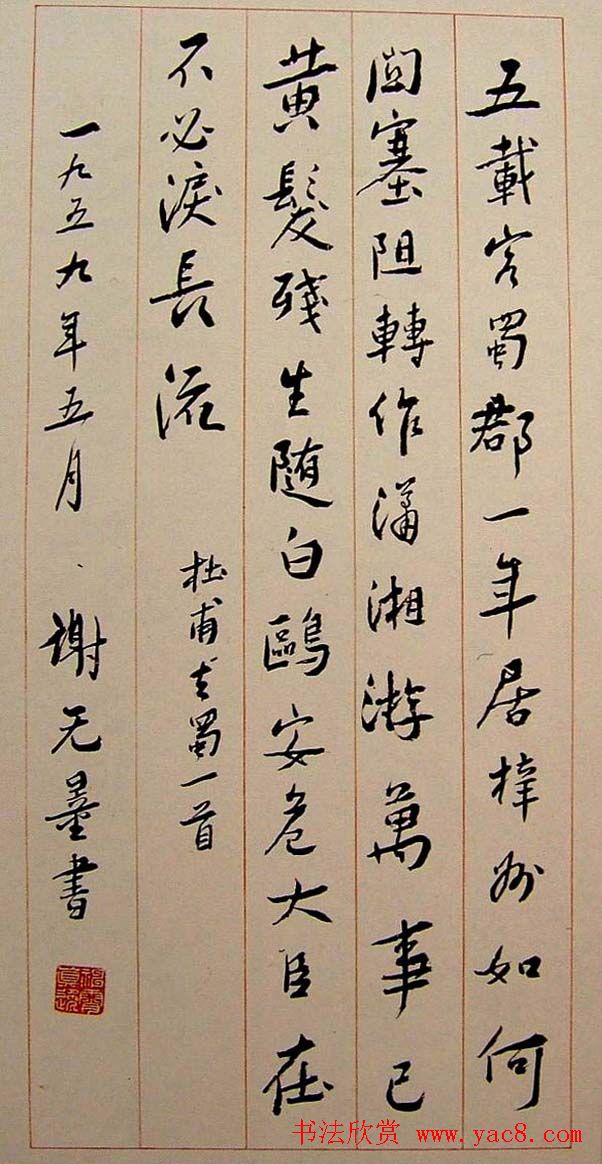 五載客蜀郡一年居梓州如何
関塞阻轉作瀟湘游萬事已
黄髮殘生随白鷗安危大臣在
不必淚長流
杜甫去蜀一首
一九五九年五月
谢无量書
书法欣赏 www.yac8.com